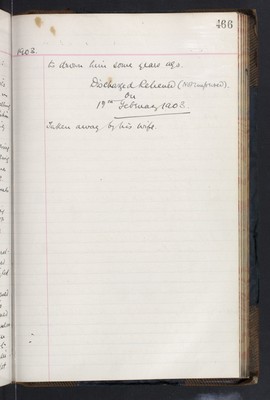 466
1903.
to drown him some years ago.
Discharged Relieved (Not improved).
on
19th February 1903.
Taken away by his wife.